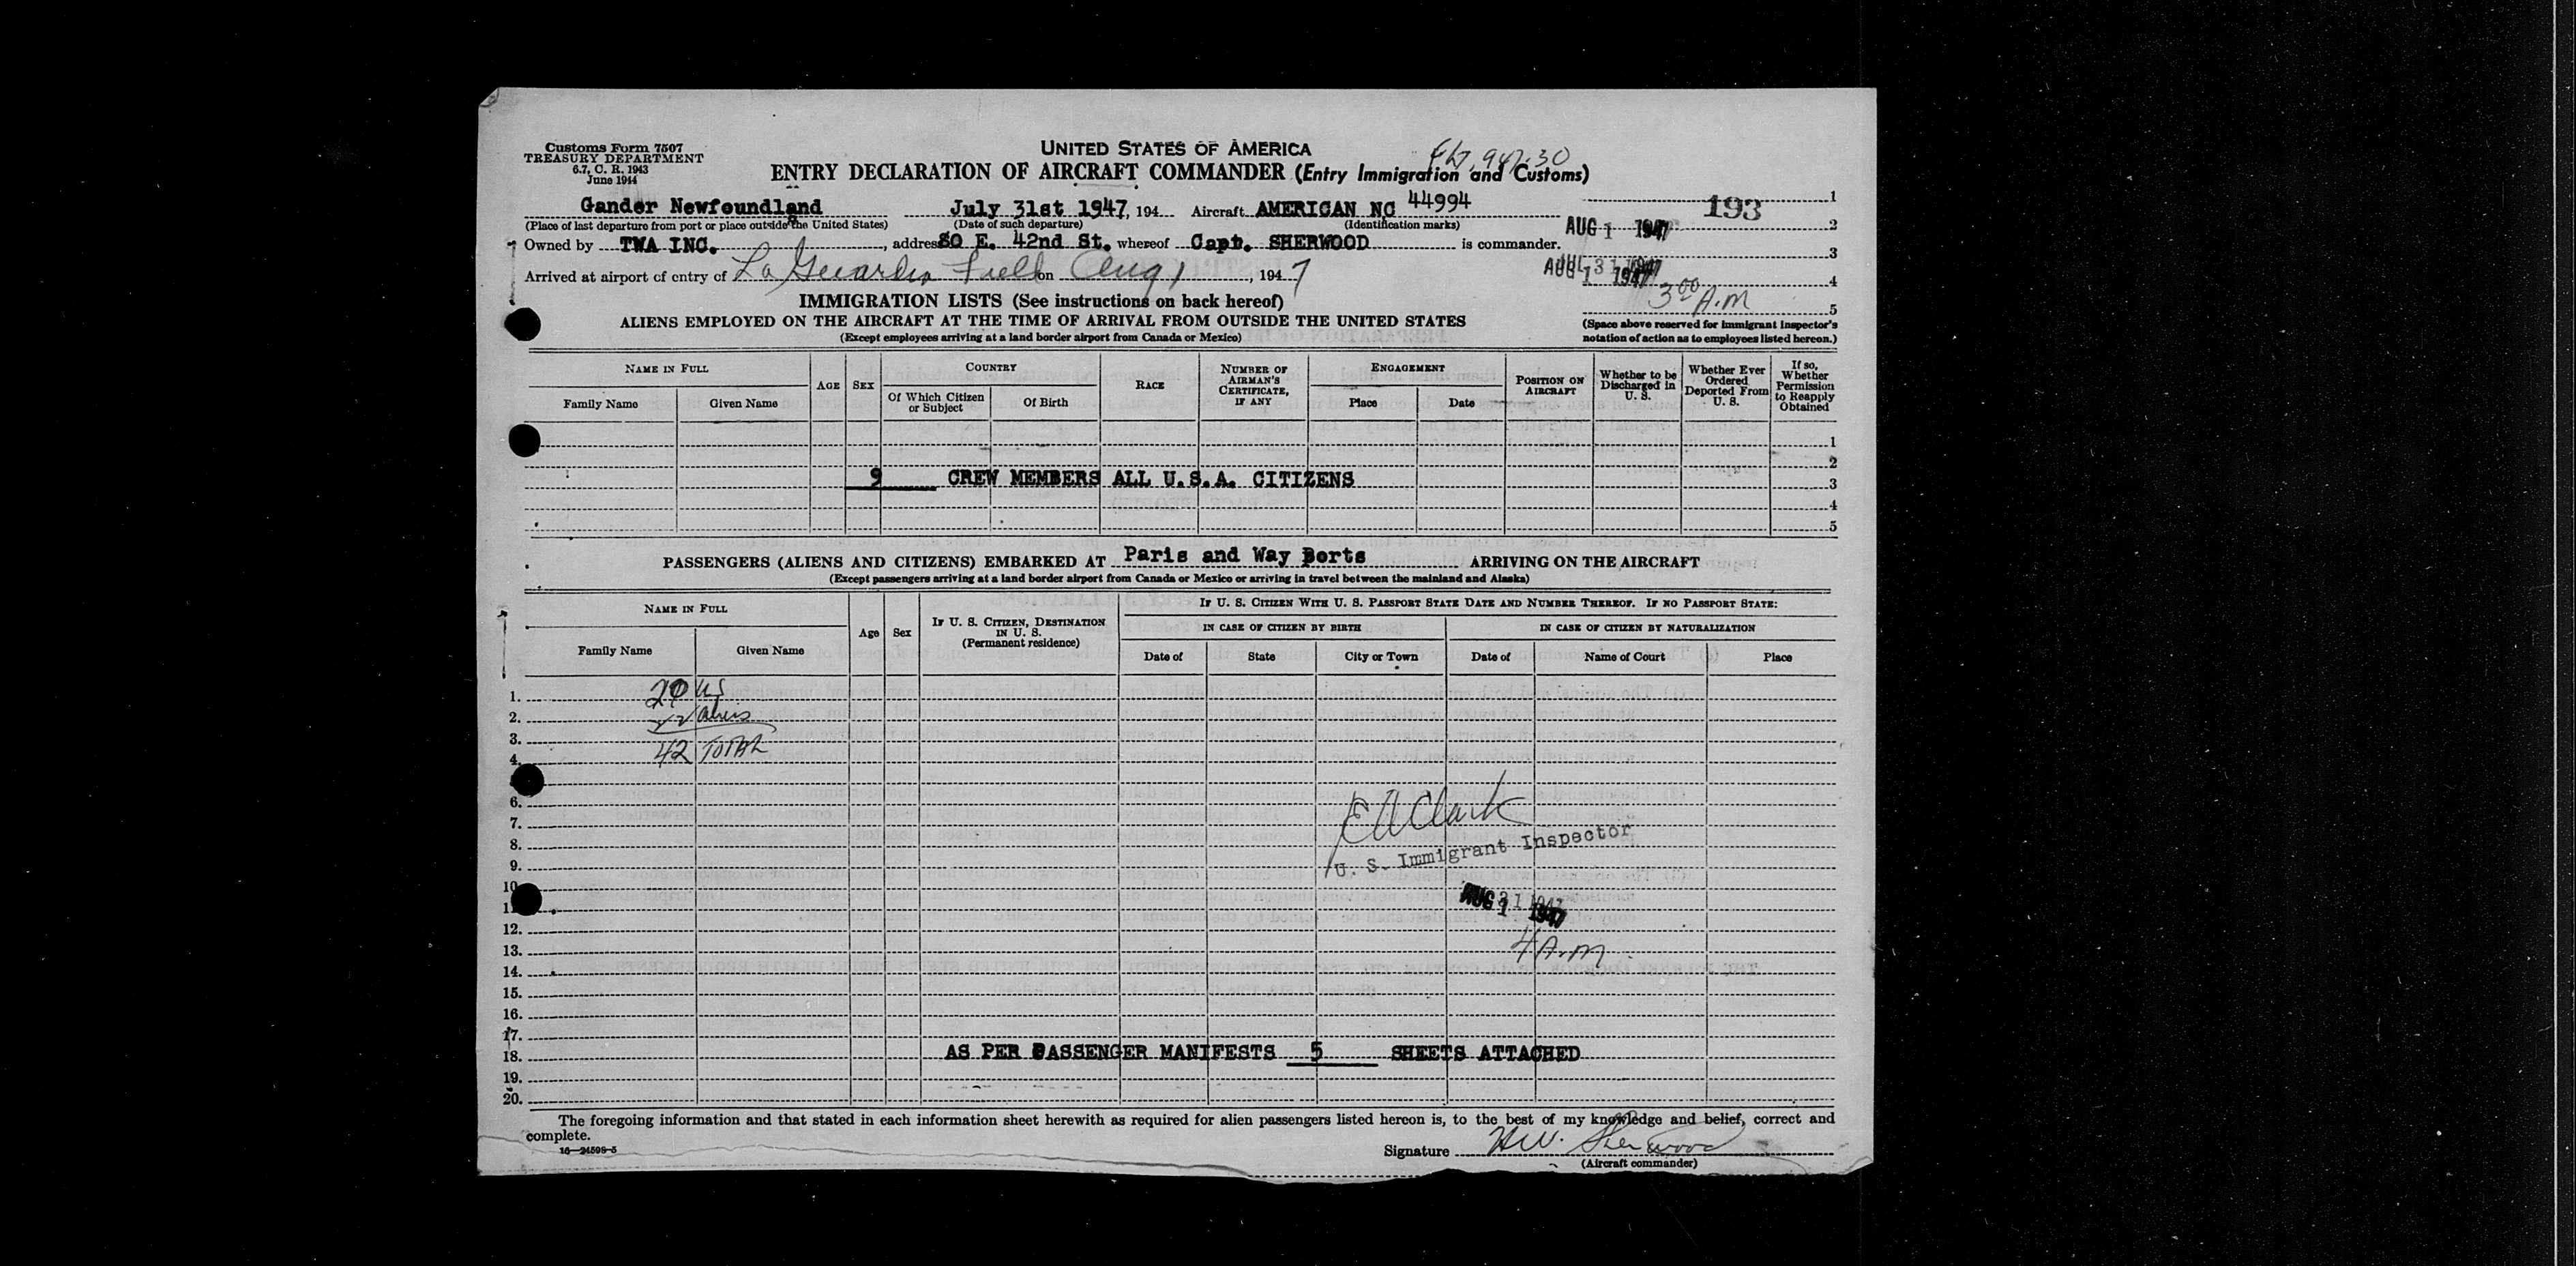 Customs Form 7507
TREASURY DEPARTMENT
6.7, C. R. 1943
June 1944
UNITED STATES OF AMERICA
Flt. 947-30
ENTRY DECLARATION OF AIRCRAFT COMMANDER (Entry Immigration and Customs)
Gander Newfoundland July 31st 1947, 194 Aircraft AMERICAN NC 44994
193 1
(Place of last departure from port or place outside the United States) (Date of such departure) (Identification marks)
AUG 1 1947 2
Owned by TWA INC., address 80 E. 42nd St. whereof Capt. SHERWOOD is commander.
3
AUG 1 1947
JUL 31 1947
Arrived at airport of entry of La Guardia Field on Aug 1, 1947
4
3 00 A.M
5
IMMIGRATION LISTS (See instructions on back hereof)
ALIENS EMPLOYED ON THE AIRCRAFT AT THE TIME OF ARRIVAL FROM OUTSIDE THE UNITED STATES
(Except employees arriving at a land border airport from Canada or Mexico)
(Space above reserved for immigrant inspector's
notation of action as to employees listed hereon.)
NAME IN FULL
Family Name Given Name
AGE SEX
COUNTRY
Of Which Citizen or Subject Of Birth
RACE
NUMBER OF AIRMAN'S CERTIFICATE, IF ANY
ENGAGEMENT
Place Date
POSITION ON AIRCRAFT
Whether to be Discharged in U. S.
Whether Ever Ordered Deported From U. S.
If so, Whether Permission to Reapply Obtained
1
2
9 CREW MEMBERS ALL U.S.A. CITIZENS
3
4
5
PASSENGERS (ALIENS AND CITIZENS) EMBARKED AT Paris and Way Ports ARRIVING ON THE AIRCRAFT
(Except passengers arriving at a land border airport from Canada or Mexico or arriving in travel between the mainland and Alaska)
NAME IN FULL
Family Name Given Name
Age Sex
IF U. S. CITIZEN, DESTINATION IN U. S.
(Permanent residence)
IF U. S. CITIZEN WITH U. S. PASSPORT STATE DATE AND NUMBER THEREOF. IF NO PASSPORT STATE:
IN CASE OF CITIZEN BY BIRTH IN CASE OF CITIZEN BY NATURALIZATION
Date of State City or Town Date of Name of Court Place
1. 20 US
2. 22 aliens
3.
4. 42 TOTAL
6.
7. E A Clark
8. U. S. Immigrant Inspector
9.
10
11 AUG 1 1947
12.
13. 4 A.M.
14.
15.
16.
17.
18. AS PER PASSENGER MANIFESTS 5 SHEETS ATTACHED
19.
20.
The foregoing information and that stated in each information sheet herewith as required for alien passengers listed hereon is, to the best of my knowledge and belief, correct and
complete.
16—24598-5
Signature H.W. Sherwood
(Aircraft commander)